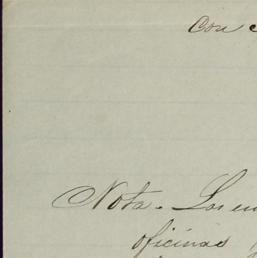 Con
Nota. Los
oficinas